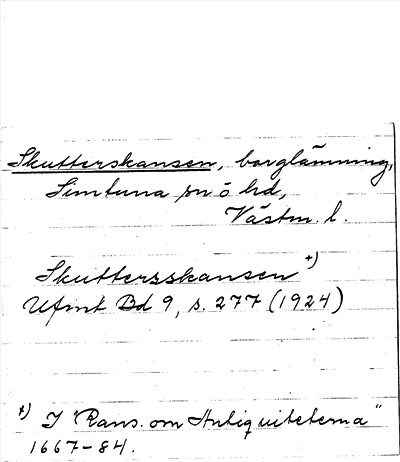 Skutterskansen, borglämning,
Simtuna sn ö hd,
Västm. l.
Skuttersskansen +)
Ufmt Bd 9, s. 277 (1924)
+) I "Rans. om Antiquiteterna"
1667-84.